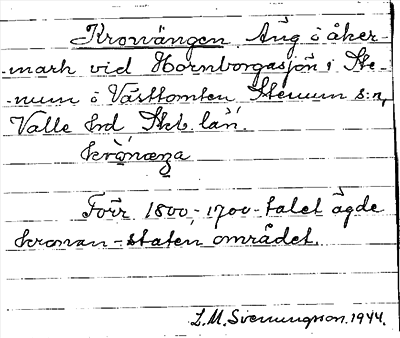 Kronängen Äng o åker-
-mark vid Hornborgasjön i Ste-
-num o Västtomten, Stenum s:n,
Valle hrd Skb. län.
krònæŋa
Förr 1800, 1700-talet ägde
kronan-staten området.
L.M. Svenungson. 1944.